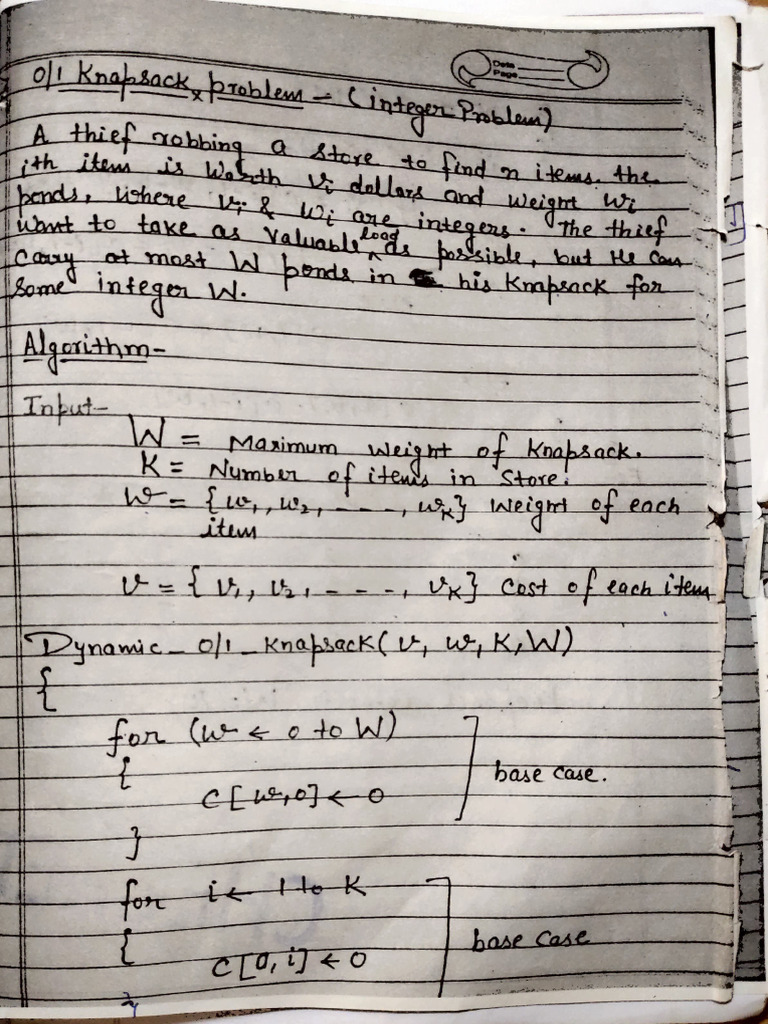 Date
Page
0/1 Knapsack problem - (integer Problem)
A thief robbing a store to find n items. the
ith item is Worth Vi dollars and weight Wi
ponds, where vi & wi are integers. The thief
want to take as valuable load as possible, but He can
carry at most W ponds in his Knapsack for
some integer W.
Algorithm-
Input-
W = Maximum weight of Knapsack.
K = Number of items in Store.
w = {w1, w2, - - - -, wK} weight of each
item
v = {v1, v2, - - - -, vK} Cost of each item
Dynamic_0/1_Knapsack(v, w, K, W)
{
for (w ← 0 to W)
{
base case.
C[w,0] ← 0
}
for i ← 1 to K
{
base case
C[0, i] ← 0
}